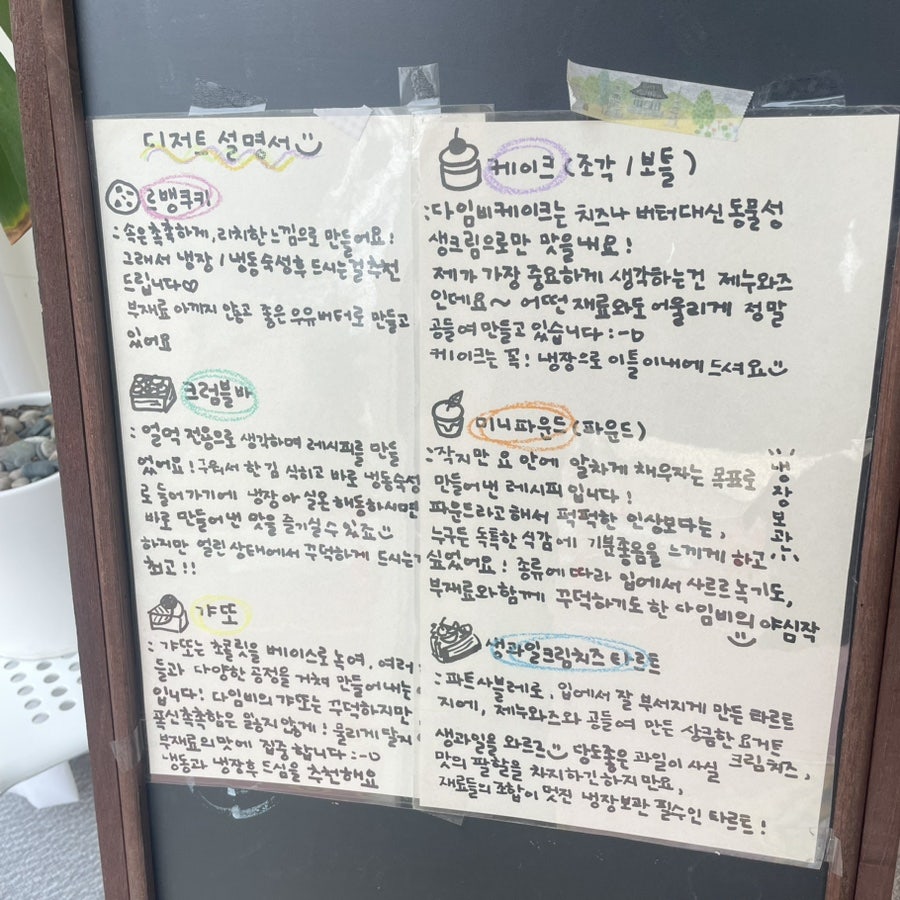 디저트 설명서
르뱅쿠키
: 속은 촉촉하게, 리치한 느낌으로 만들어요!
그래서 냉장 / 냉동숙성후 드시는걸 추천
드립니다♡
부재료 아끼지 않고 좋은 우유버터로 만들고
있어요
크럼블바
: 얼먹 전용으로 생각하며 레시피를 만들
었어요! 구워서 한김 식히고 바로 냉동숙성
로 들어가기에 냉장 아 실온 해동하시면
바로 만들어낸 맛을 즐기실 수 있죠
하지만 얼린 상태에서 꾸덕하게 드시는
최고!!
갸또
: 갸또는 초콜릿을 베이스로 녹여, 여러
들과 다양한 공정을 거쳐 만들어내는
입니다! 다임비의 갸또는 꾸덕하지만
폭신촉촉함은 잃지않게! 물리게 달지
부재료의 맛에 집중합니다 :-D
냉동과 냉장후 드심을 추천해요
케이크 (조각 / 보틀)
: 다임비케이크는 치즈나 버터대신 동물성
생크림으로만 맛을 내요!
제가 가장 중요하게 생각하는건 제누와즈
인데요~ 어떤 재료와도 어울리게 정말
공들여 만들고 있습니다 :-D
케이크는 꼭! 냉장으로 이틀이내에 드셔요
미니파운드 (파운드)
냉장보관
: 작지만 요 안에 알차게 채우자는 목표로
만들어낸 레시피입니다!
파운드라고해서 퍽퍽한 인상보다는,
누구든 독특한 식감에 기분좋음을 느끼게 하고
싶었어요! 종류에 따라 입에서 사르르 녹기도,
부재료와 함께 꾸덕하기도 한 다임비의 야심작
생과일크림치즈 타르트
: 파트사블레로, 입에서 잘 부서지게 만든 타르트
지에, 제누와즈와 공들여 만든 상큼한 요거트
크림치즈,
생과일을 와르르 당도좋은 과일이 사실
맛의 팔할을 차지하긴 하지만요,
재료들의 조합이 멋진 냉장보관 필수인 타르트!